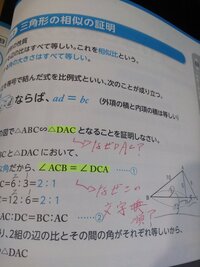 三角形の相似の証明
の比はすべて等しい。これを相似比という。
の角の大きさはすべて等しい。
等号で結んだ式を比例式といい、次のことが成り立つ。
ならば, ad = bc (外項の積と内項の積は等しい)
の図で△ABC∽△DACとなることを証明しなさい。
なぜDAC?
BCと△DACにおいて,
だから, ∠ACB=∠DCA ……①
C=6:3=2:1
なぜこの
=2:1
文字無
順?
AC:DC=BC:AC ……②
り, 2組の辺の比とその間の角がそれぞれ等しいから,
△DAC